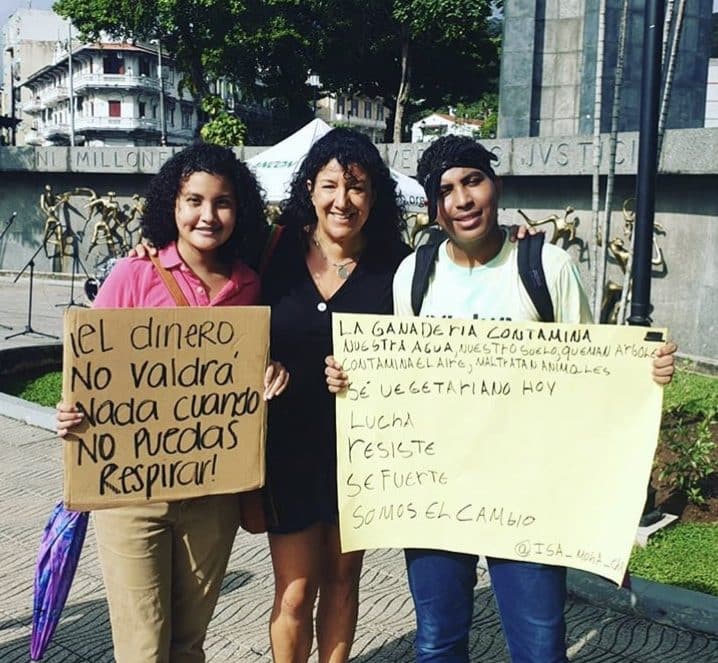 NI MILLONE
JVSTICI
¡EL dinero
No valdrá
Nada cuando
NO PUEdas
Respirar!
LA GANADERIA CONTAMINA
NUESTRA AGUA, NUESTRO SUELO, QUEMAN ARBOLE
CONTAMINA EL AIRE, MALTRATAN ANIMALES
SÉ VEGETARIANO HOY
LUCHA
RESISTE
SE FUERTE
SOMOS EL CAMBIO